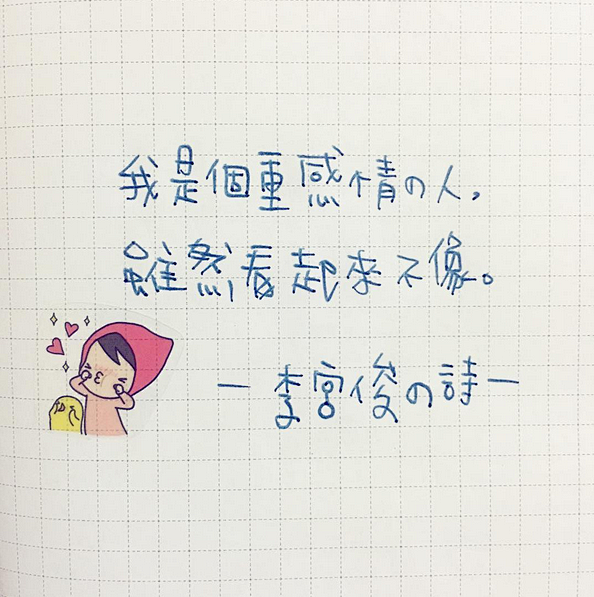 我是個重感情の人,
雖然看起來不像。
— 李宮俊の詩 —